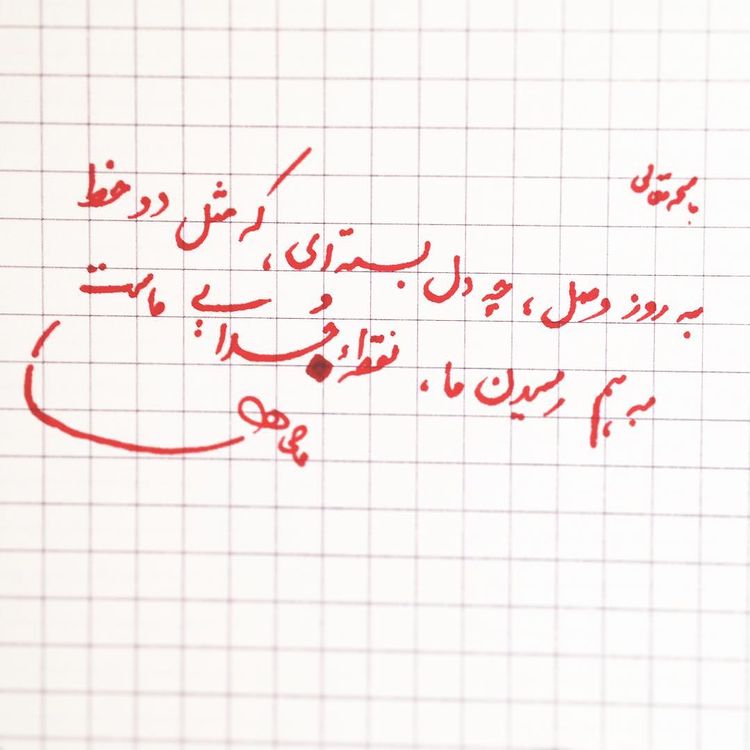 باسمه تعالی
به روز وصل، چه دل بسته ای، که مثل دو خط
به هم رسیدن ما، نقطهٔ جدایی ماست